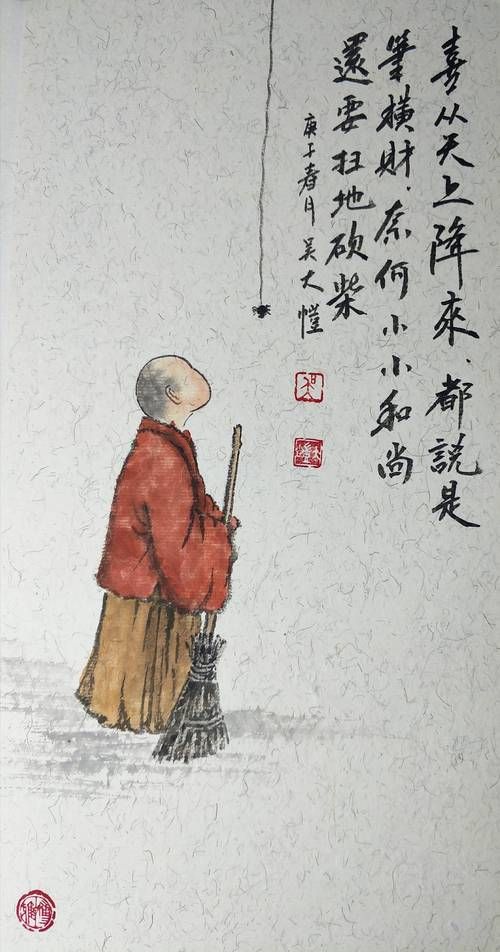 喜从天上降來、都說是
筆橫財、奈何小小和尚
還要扫地砍柴
庚子春月 吴大愷